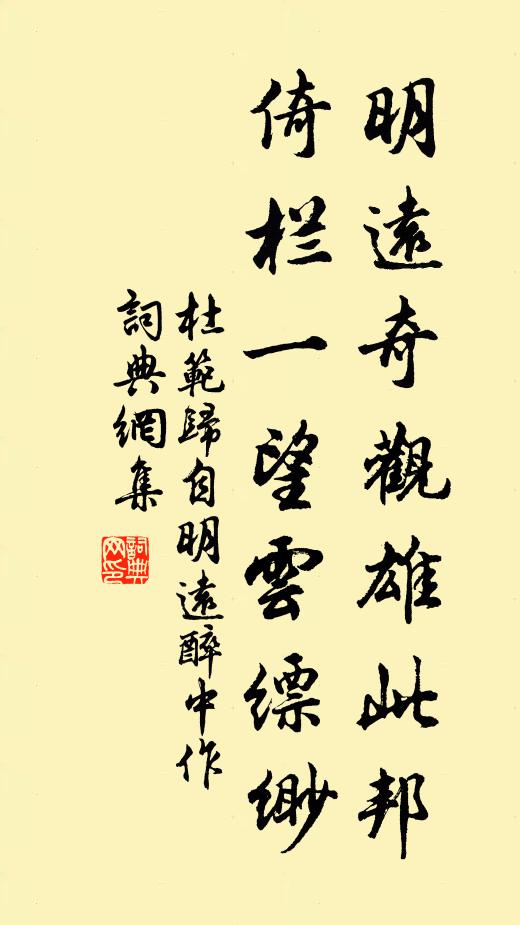 明遠奇觀雄此邦
倚栏一望雲縹緲
杜範歸自明遠醉中作
詞典網集
詞典
网印